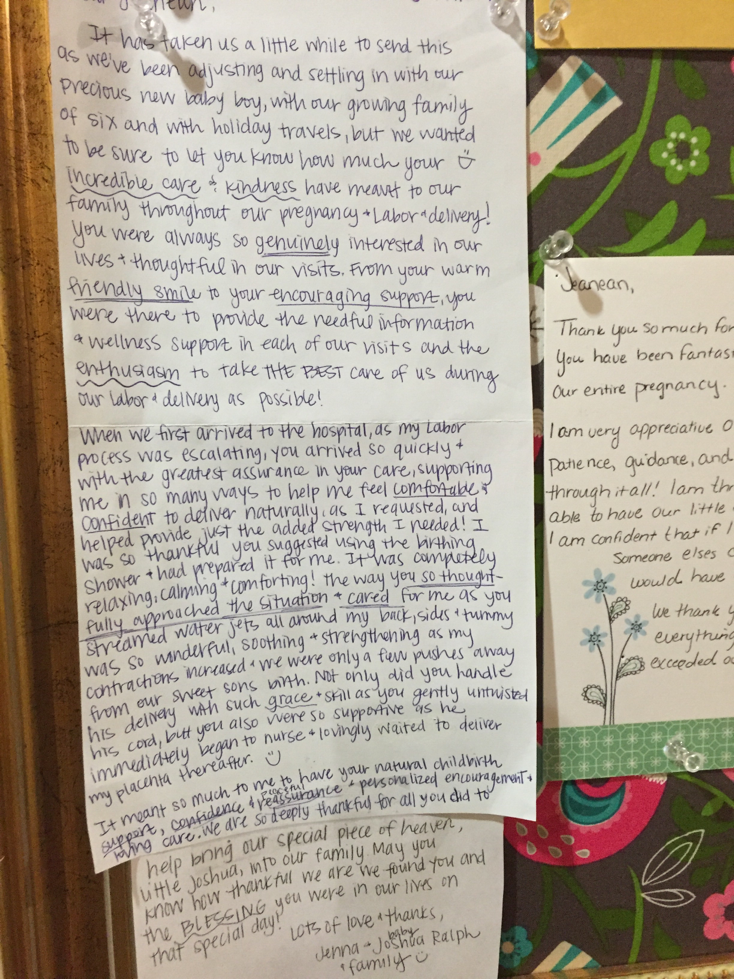 It has taken us a little while to send this
as we've been adjusting and settling in with our
precious new baby boy, with our growing family
of six and with holiday travels, but we wanted
to be sure to let you know how much your
incredible care & kindness have meant to our
family throughout our pregnancy + Labor & delivery!
You were always so genuinely interested in our
lives + thoughtful in our visits. From your warm
friendly smile to your encouraging support, you
were there to provide the needful information
& wellness support in each of our visits and the
enthusiasm to take THE BEST care of us during
our labor & delivery as possible!
When we first arrived to the hospital, as my Labor
process was escalating, you arrived so quickly +
with the greatest assurance in your care, supporting
me in so many ways to help me feel comfortable &
confident to deliver naturally, as I requested, and
helped provide just the added strength I needed! I
was so thankful you suggested using the birthing
shower + had prepared it for me. It was completely
relaxing, calming + comforting! the way you so thought-
fully approached the situation + cared for me as you
streamed water jets all around my back, sides + tummy
was so wonderful, soothing + strengthening as my
contractions increased + we were only a few pushes away
from our sweet sons birth. Not only did you handle
his delivery with such grace + skill as you gently untwisted
his cord, but you also were so supportive as he
immediately began to nurse + lovingly waited to deliver
my placenta thereafter.
It meant so much to me to have your natural childbirth
support, confidence & peaceful reassurance + personalized encouragement +
loving care. We are so deeply thankful for all you did to
help bring our special piece of heaven,
little Joshua, into our family. May you
know how thankful we are we found you and
the BLESSING you were in our lives on
that special day!
Lots of love & thanks,
Jenna + baby Joshua Ralph
+ family
Jeanean,
Thank you so much for
You have been
Our entire pregnancy.
I am very appreciative
patience, guidance, and
through it all! I am
able to have our little
I am confident that if I
Someone elses
would have
We thank
everything
exceeded